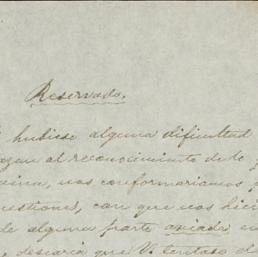 Reservado.
hubiese alguna dificultad
al reconocimiento de lo
nos conformariamos
cuestiones, con que nos hici
de alguna parte aviada
desearia que V. tentase